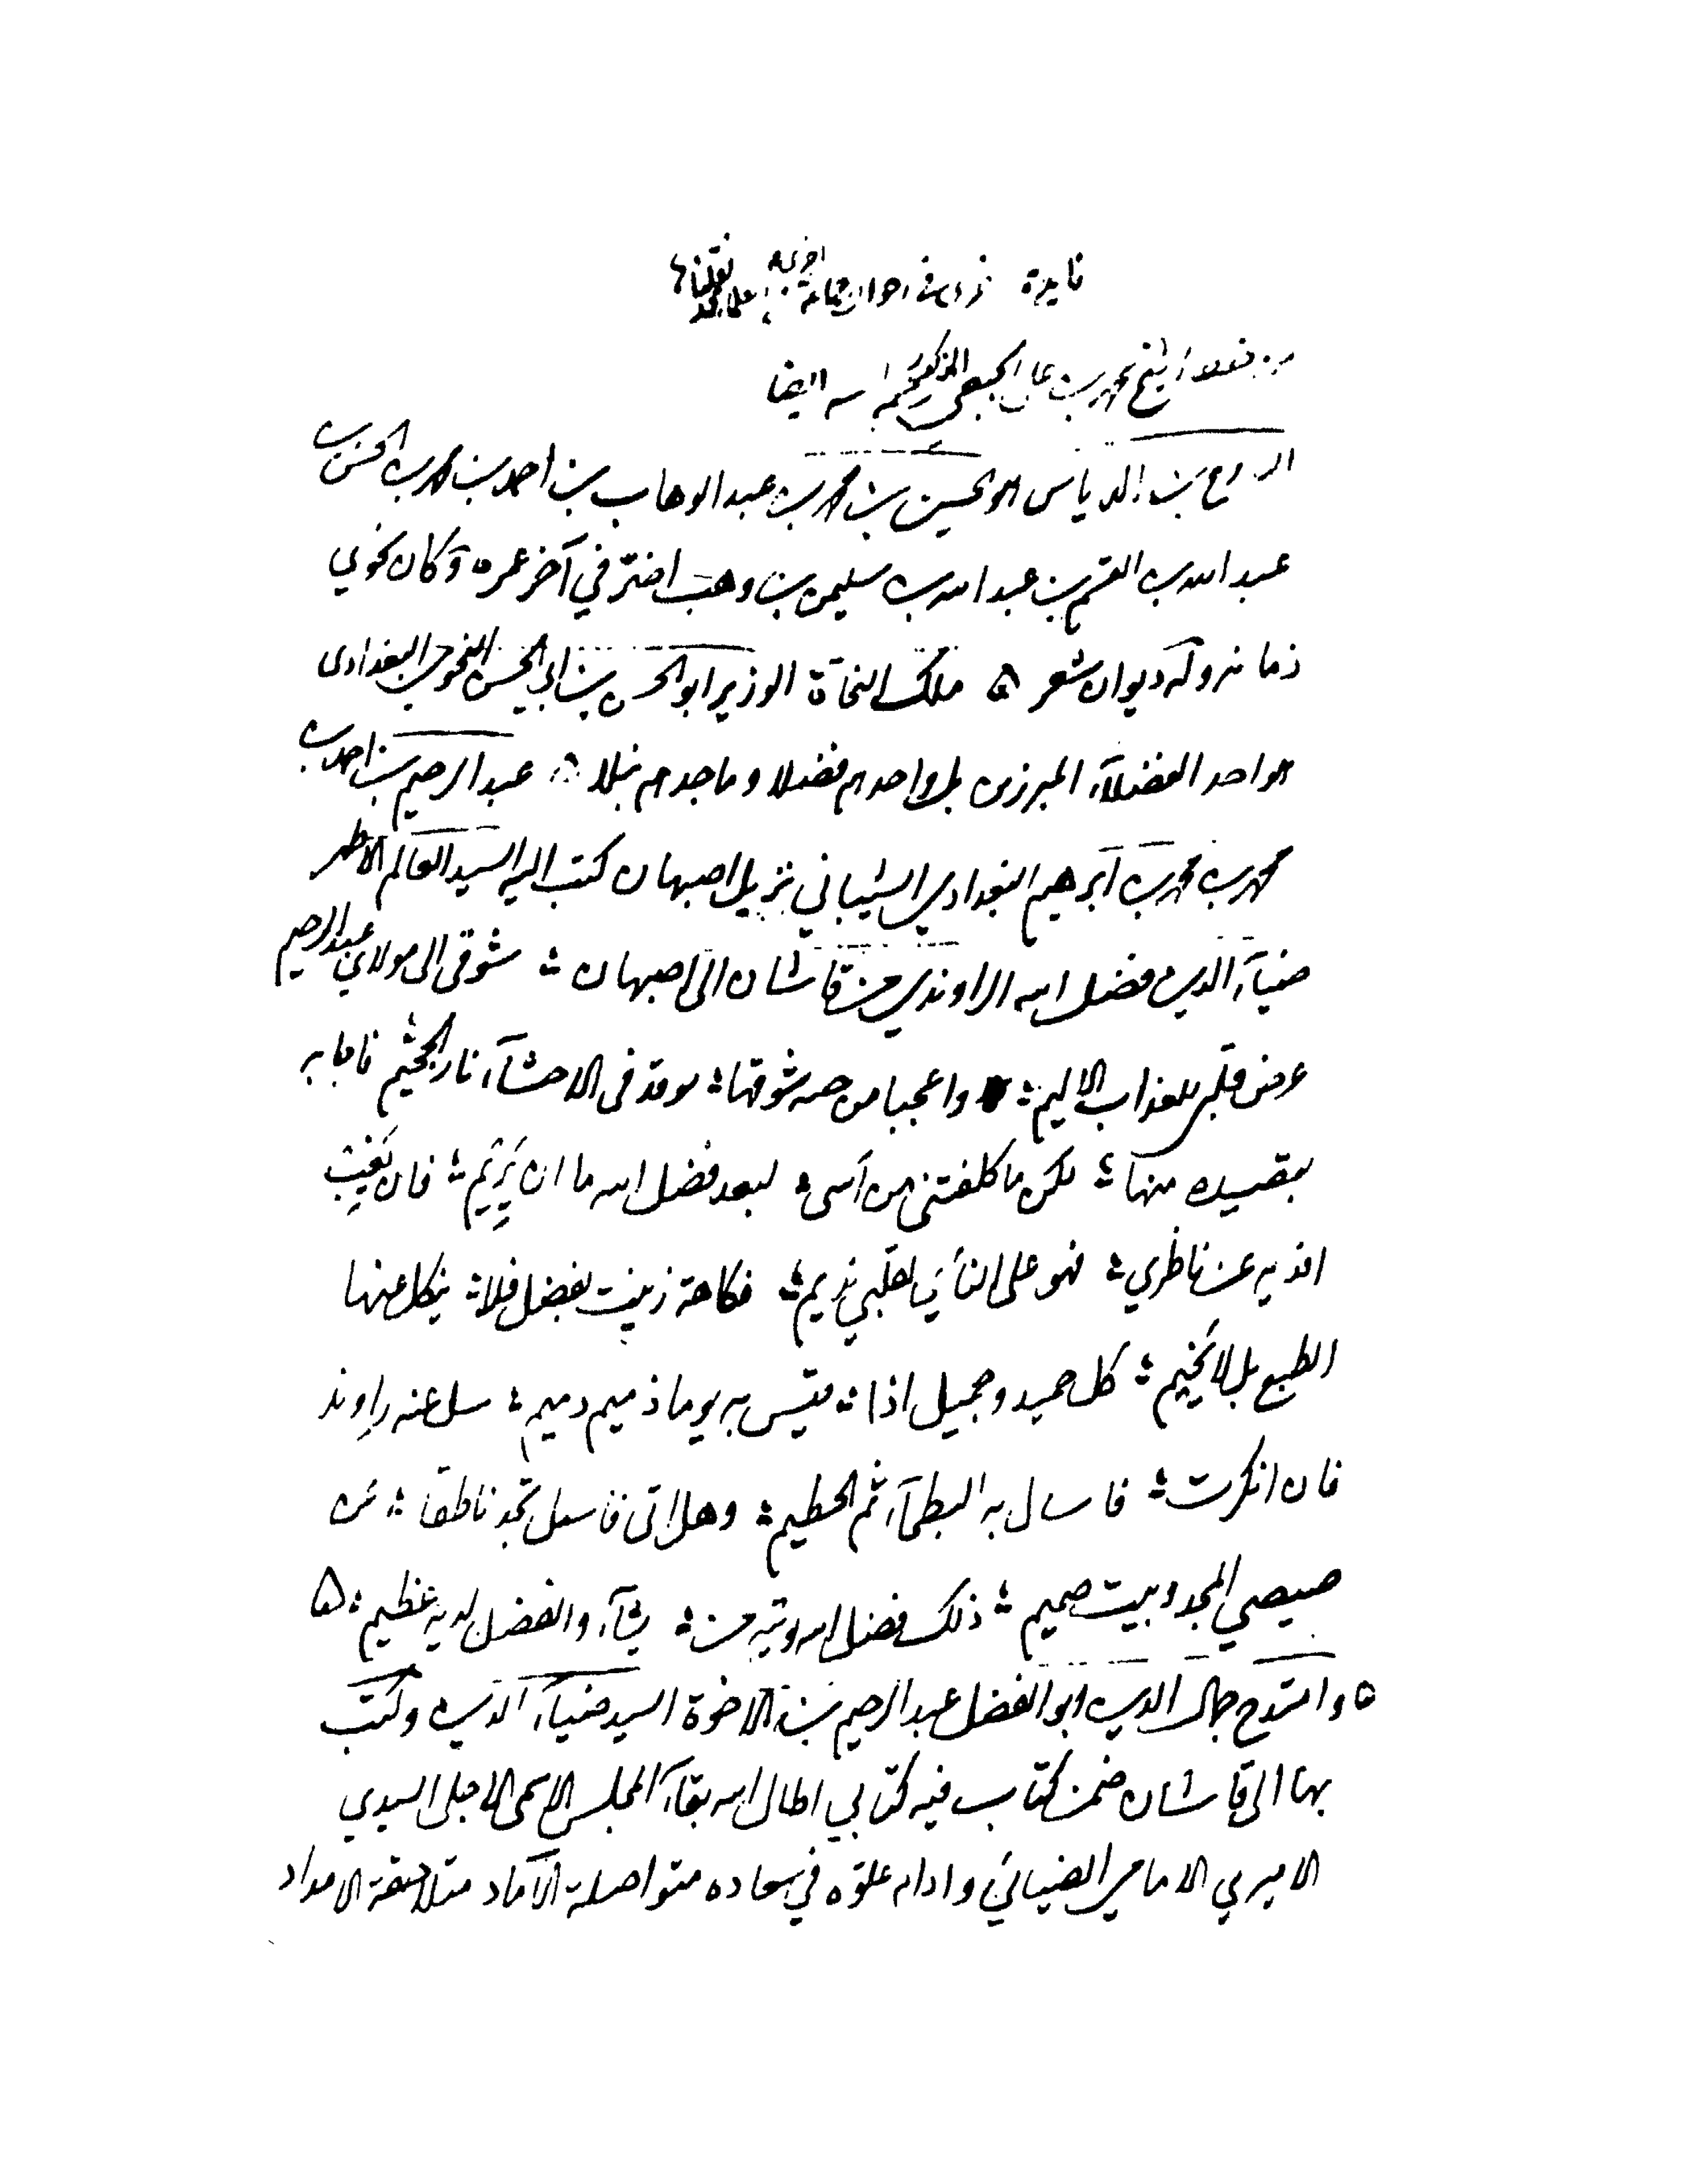 فايدة في احوال جماعة اخرى من علمائنا نقلناها
من خط الشيخ محمد بن علي الجبعي المذكور رحمه الله ايضا
البارع بن الدباس ابو الحسين بن محمد بن عبد الوهاب بن احمد بن محمد بن الحسن بن
عبد الله بن القسم بن عبد الله بن سليمن بن وهب اضر في آخر عمره وكان نحوي
زمانه وله ديوان شعر ه ملك النحاة الوزير ابو الحسن بن ابي الحسن النحوي البغدادي
هو احد الفضلآء المبرزين بل واحدهم فضلا وماجدهم نبلا ه عبد الرحيم بن احمد بن
محمد بن محمد بن ابرهيم البغدادي الشيباني نزيل اصبهان كتب اليه السيد العالم الاطهر
ضيآء الدين فضل الله الراوندي من قاشان الى اصبهان ؛ شوقي الى مولاي عبد الرحيم
عرض قلبي للعذاب الاليم ؛ واعجبا من جنة شوقها ؛ يوقد في الاحشآء نار الجحيم فاجابه
بقصيده منها ؛ لكن ما كلفتني من آسى ؛ لبعد فضل الله ما ان يَرِيم ؛ فان يَغِب
افديه عن ناظري ؛ فهو على النأي لقلبي نديم ؛ فكاهة زينت بفضل فلا ؛ ينكل عنها
الطبع بل لا يَخِيم ؛ كل حميد وجميل اذا ؛ قيس به يوما ذميم دميم ؛ سل عنه راوند
فان انكرت ؛ فاسال به البطحآء ثم الحطيم ؛ وهل اتى فاسل تجد ناطقا ؛ عن
صيصي المجد وبيت صميم ؛ ذلك فضل الله يؤتيه من ؛ يشآء والفضل لديه عظيم ؛ ه
ه وامتدح جمال الدين ابو الفضل عبد الرحيم بن الاخوة السيد ضيآء الدين وكتب
بها الى قاشان ضمن كتاب فيه كتابي اطال الله بقآء المجلس الاسمى الاجلى السيدي
الاميري الامامي الضيائي وادام علوّه في سعاده متواصلة الآماد متلاحقة الامداد